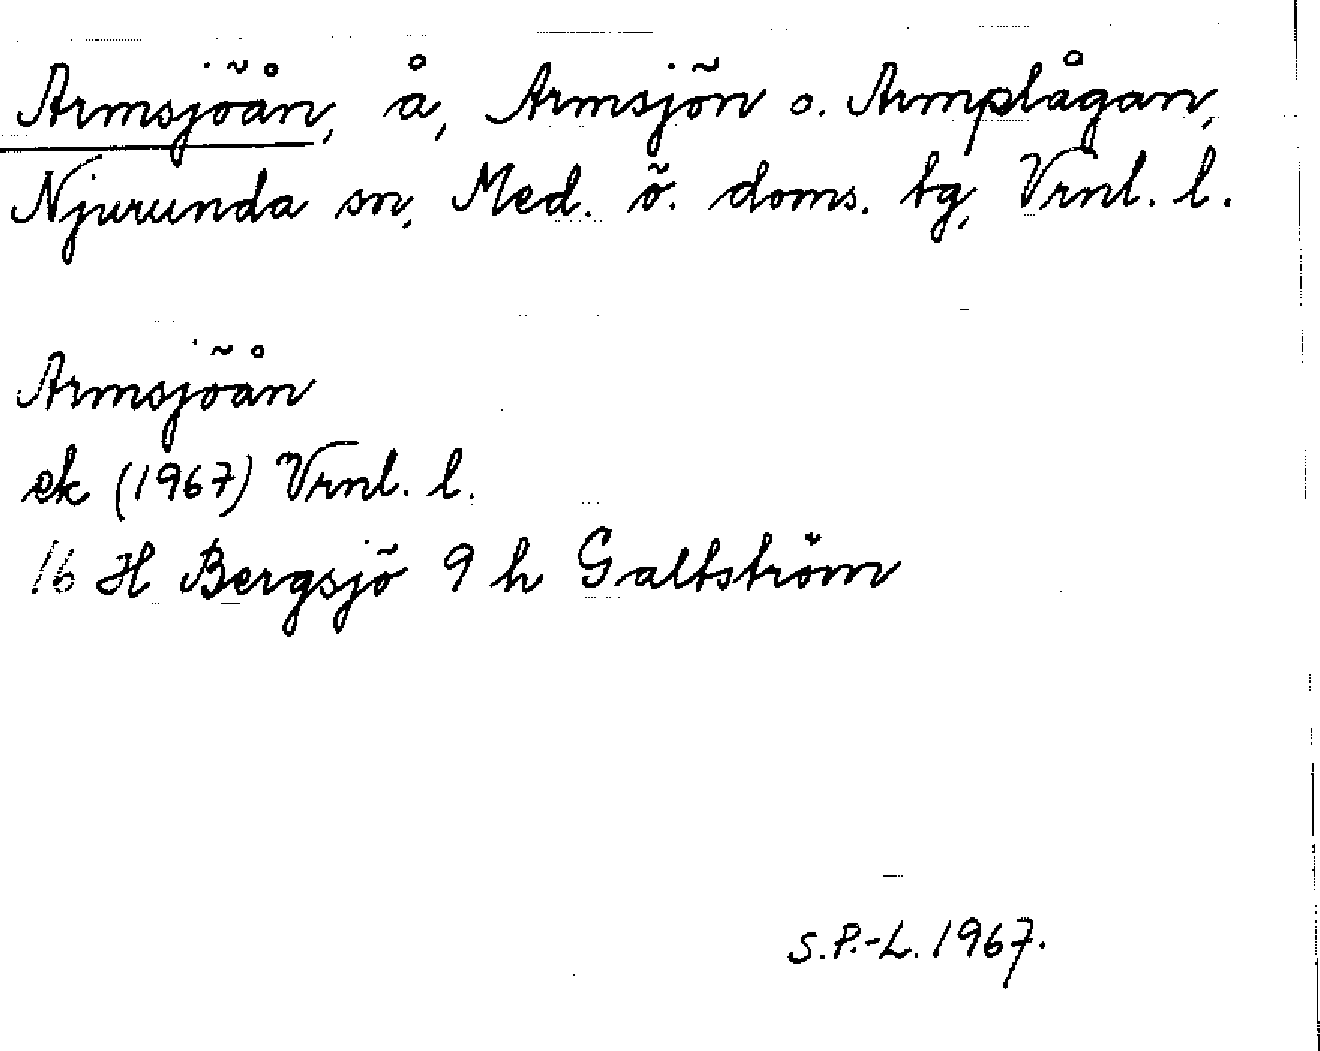 Armsjöån, å, Armsjön o. Armplågan,
Njurunda sn, Med. ö. doms. tg, Vrnl. l.
Armsjöån
ek (1967) Vrnl. l.
16 H Bergsjö 9 h Galtström
S.P.-L. 1967.